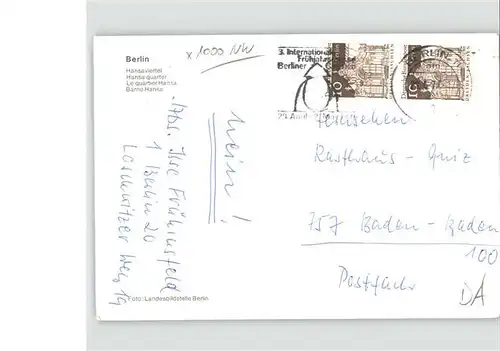 Berlin
Hansaviertel
Hansa quarter
Le quartier Hansa
Barrio Hansa
x 1000 NW
3. Internationale
Berliner
BERLIN
10
10
nein!
Abs. Ilse Frühinsfeld
1 Berlin 20
Loschwitzer Weg 19
Fernsehen
Rasthaus-Quiz
757 Baden-Baden
100
Postfach
DA
Foto: Landesbildstelle Berlin